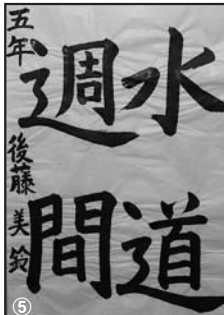 水道
週間
五年 後藤美鈴
⑤